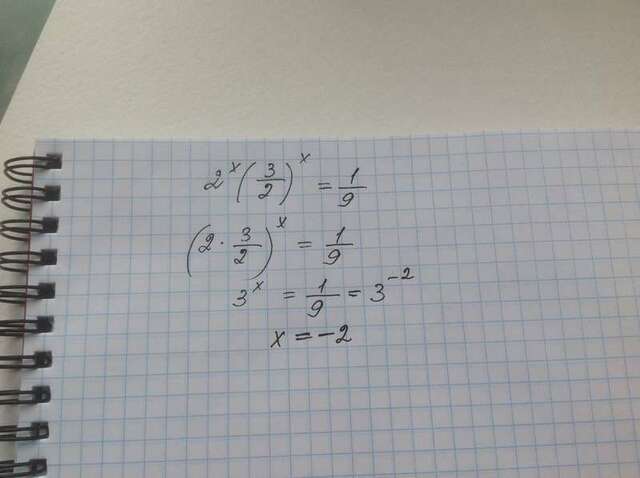 2^x (3/2)^x = 1/9
(2 · 3/2)^x = 1/9
3^x = 1/9 = 3^-2
x = -2